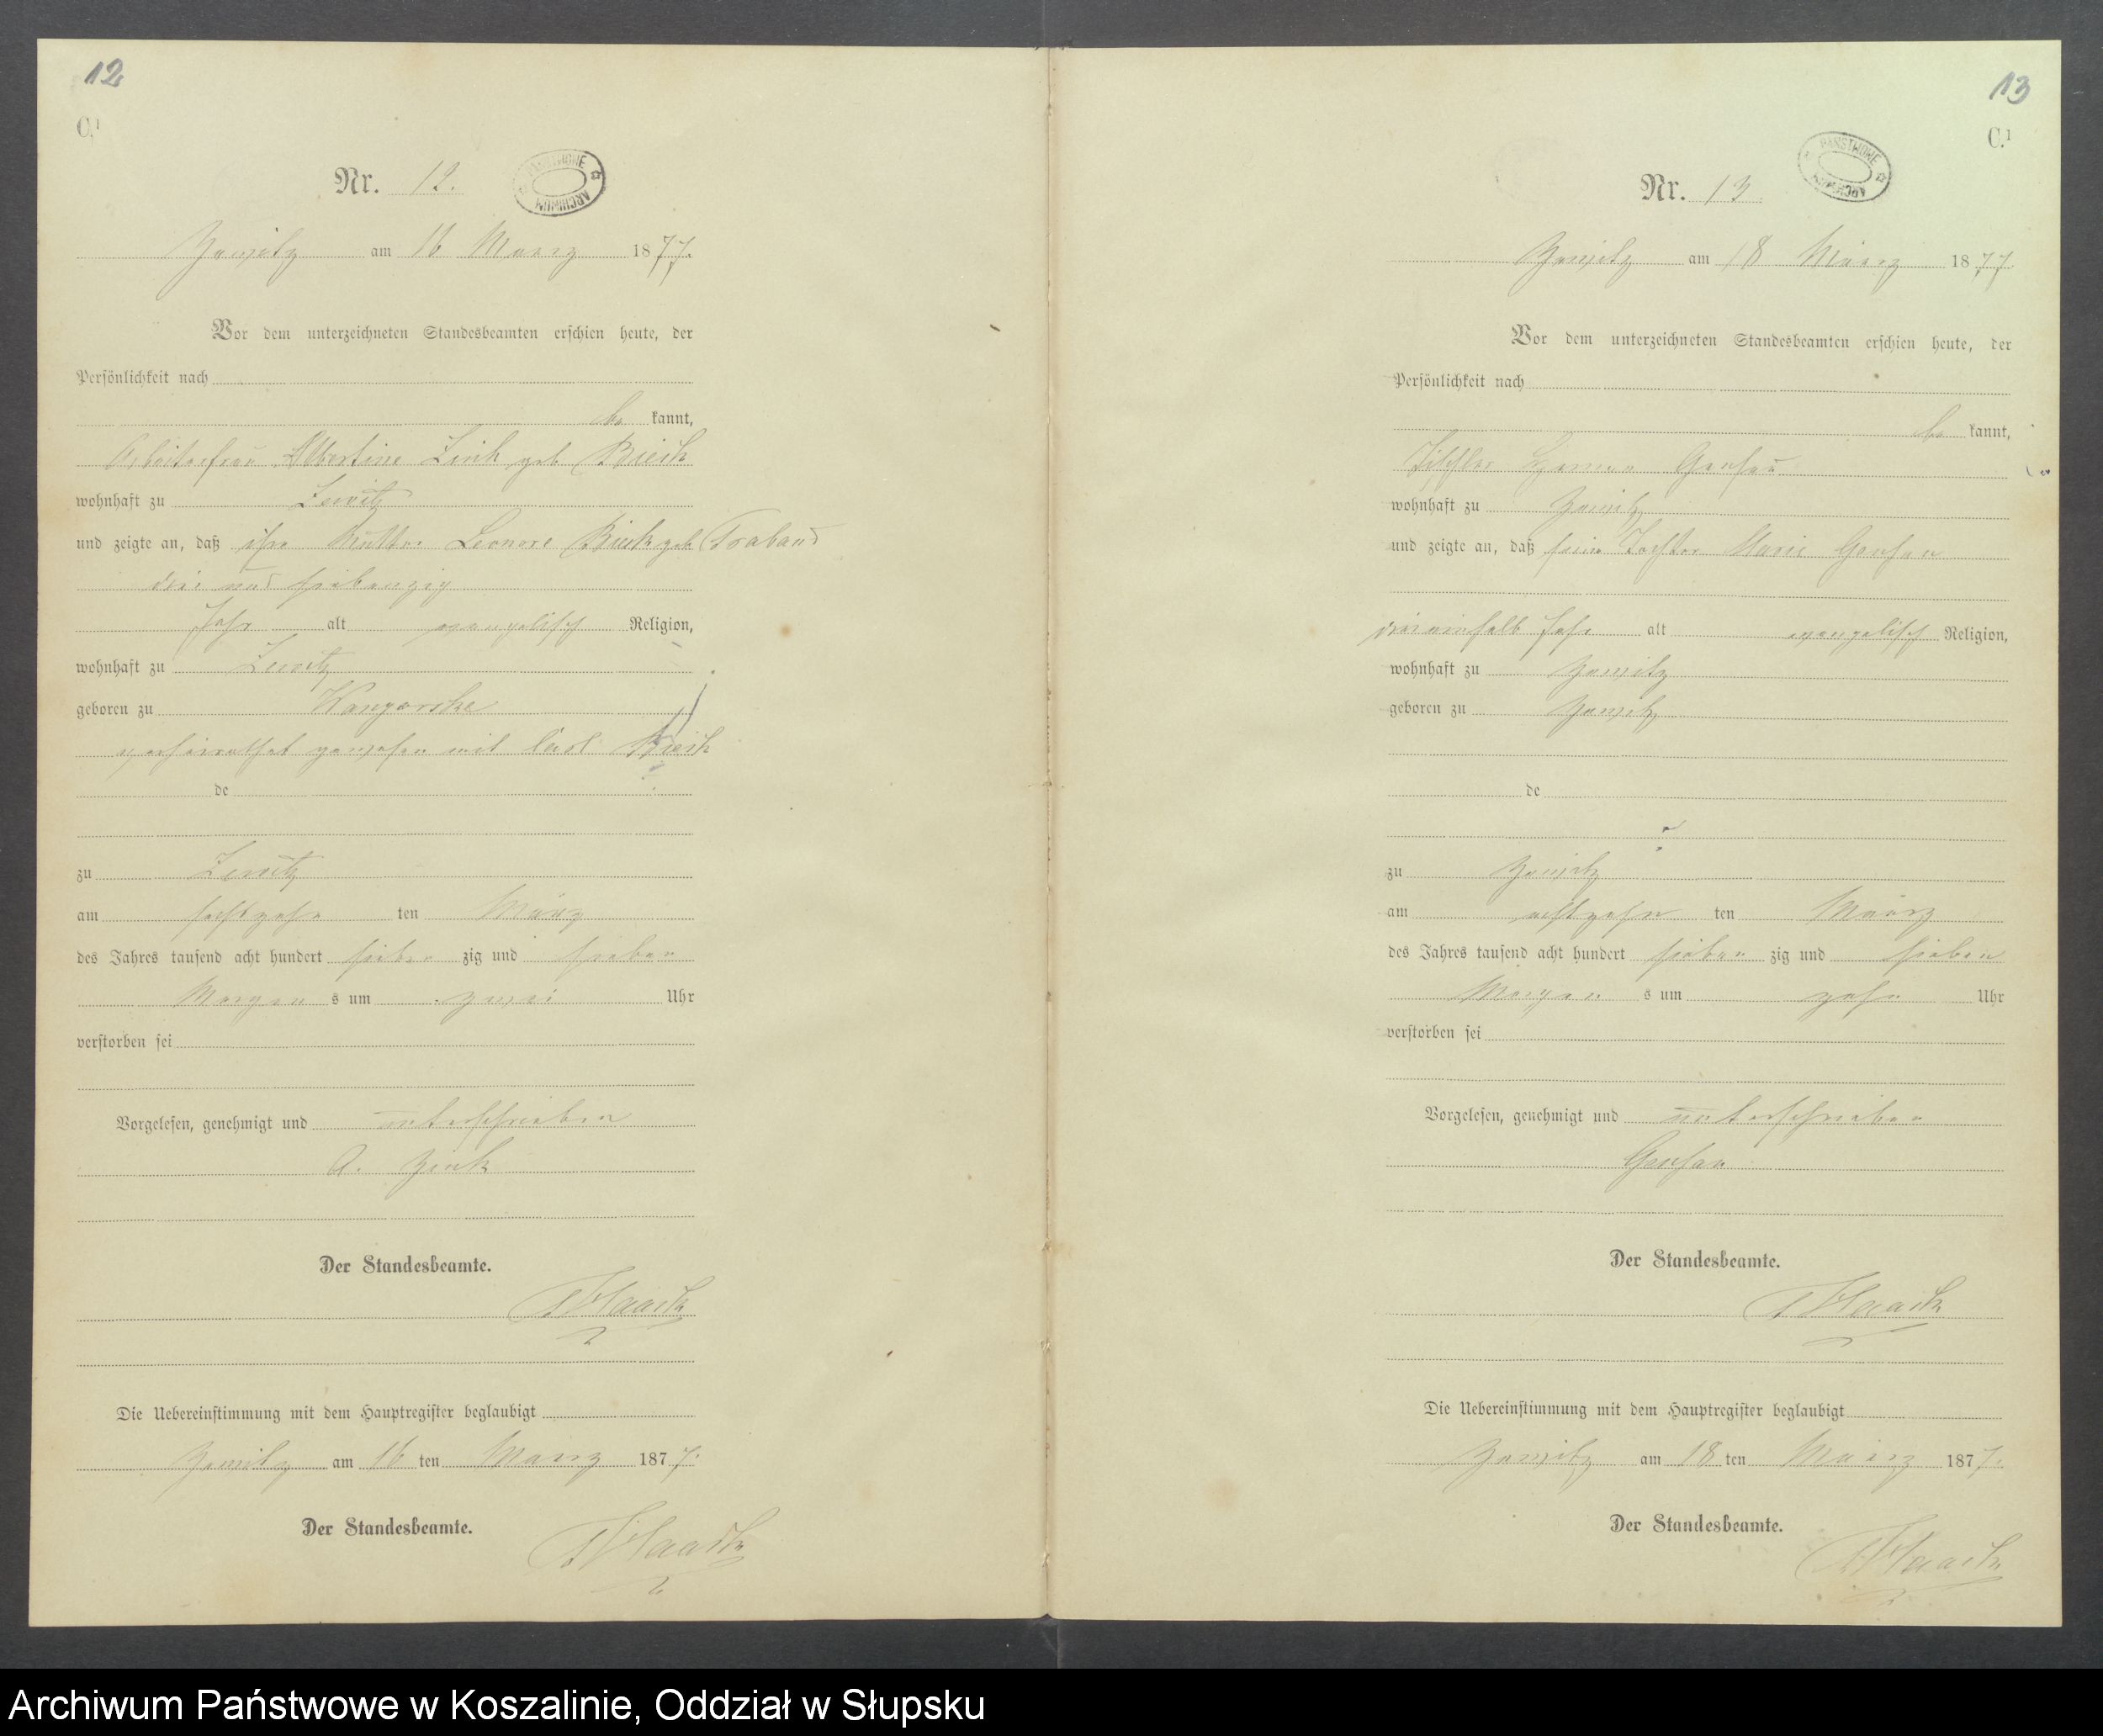 12
C.¹
Nr. 12.
PAŃSTWOWE ARCHIWUM
am 16 Maerz 1877.
Vor dem unterzeichneten Standesbeamten erschien heute, der
Persönlichkeit nach
be kannt,
Arbeiterfrau Albertine Zink geb Rieck
wohnhaft zu Zewitz
und zeigte an, daß ihre Mutter Leonore Rieck geb Traband
drei und siebenzig
Jahr alt evangelisch Religion,
wohnhaft zu Zewitz
geboren zu
verheirathet gewesen mit Carl Rieck
de
zu Zewitz
am sechszehn ten März
des Jahres tausend acht hundert sieben zig und sieben
Morgen s um zwei Uhr
verstorben sei
Vorgelesen, genehmigt und unterschrieben
A. Zink
Der Standesbeamte.
Die Uebereinstimmung mit dem Hauptregister beglaubigt
am 16 ten Maerz 1877.
Der Standesbeamte.
13
C.¹
Nr. 13.
PAŃSTWOWE ARCHIWUM
am 18 März 1877
Vor dem unterzeichneten Standesbeamten erschien heute, der
Persönlichkeit nach
be kannt,
Tischler
wohnhaft zu
und zeigte an, daß seine Tochter Marie
dreieinhalb Jahr alt evangelisch Religion,
wohnhaft zu
geboren zu
de
zu
am achtzehn ten Maerz
des Jahres tausend acht hundert sieben zig und sieben
Morgen s um zehn Uhr
verstorben sei
Vorgelesen, genehmigt und unterschrieben
Der Standesbeamte.
Die Uebereinstimmung mit dem Hauptregister beglaubigt
am 18 ten Maerz 1877.
Der Standesbeamte.
Archiwum Państwowe w Koszalinie, Oddział w Słupsku